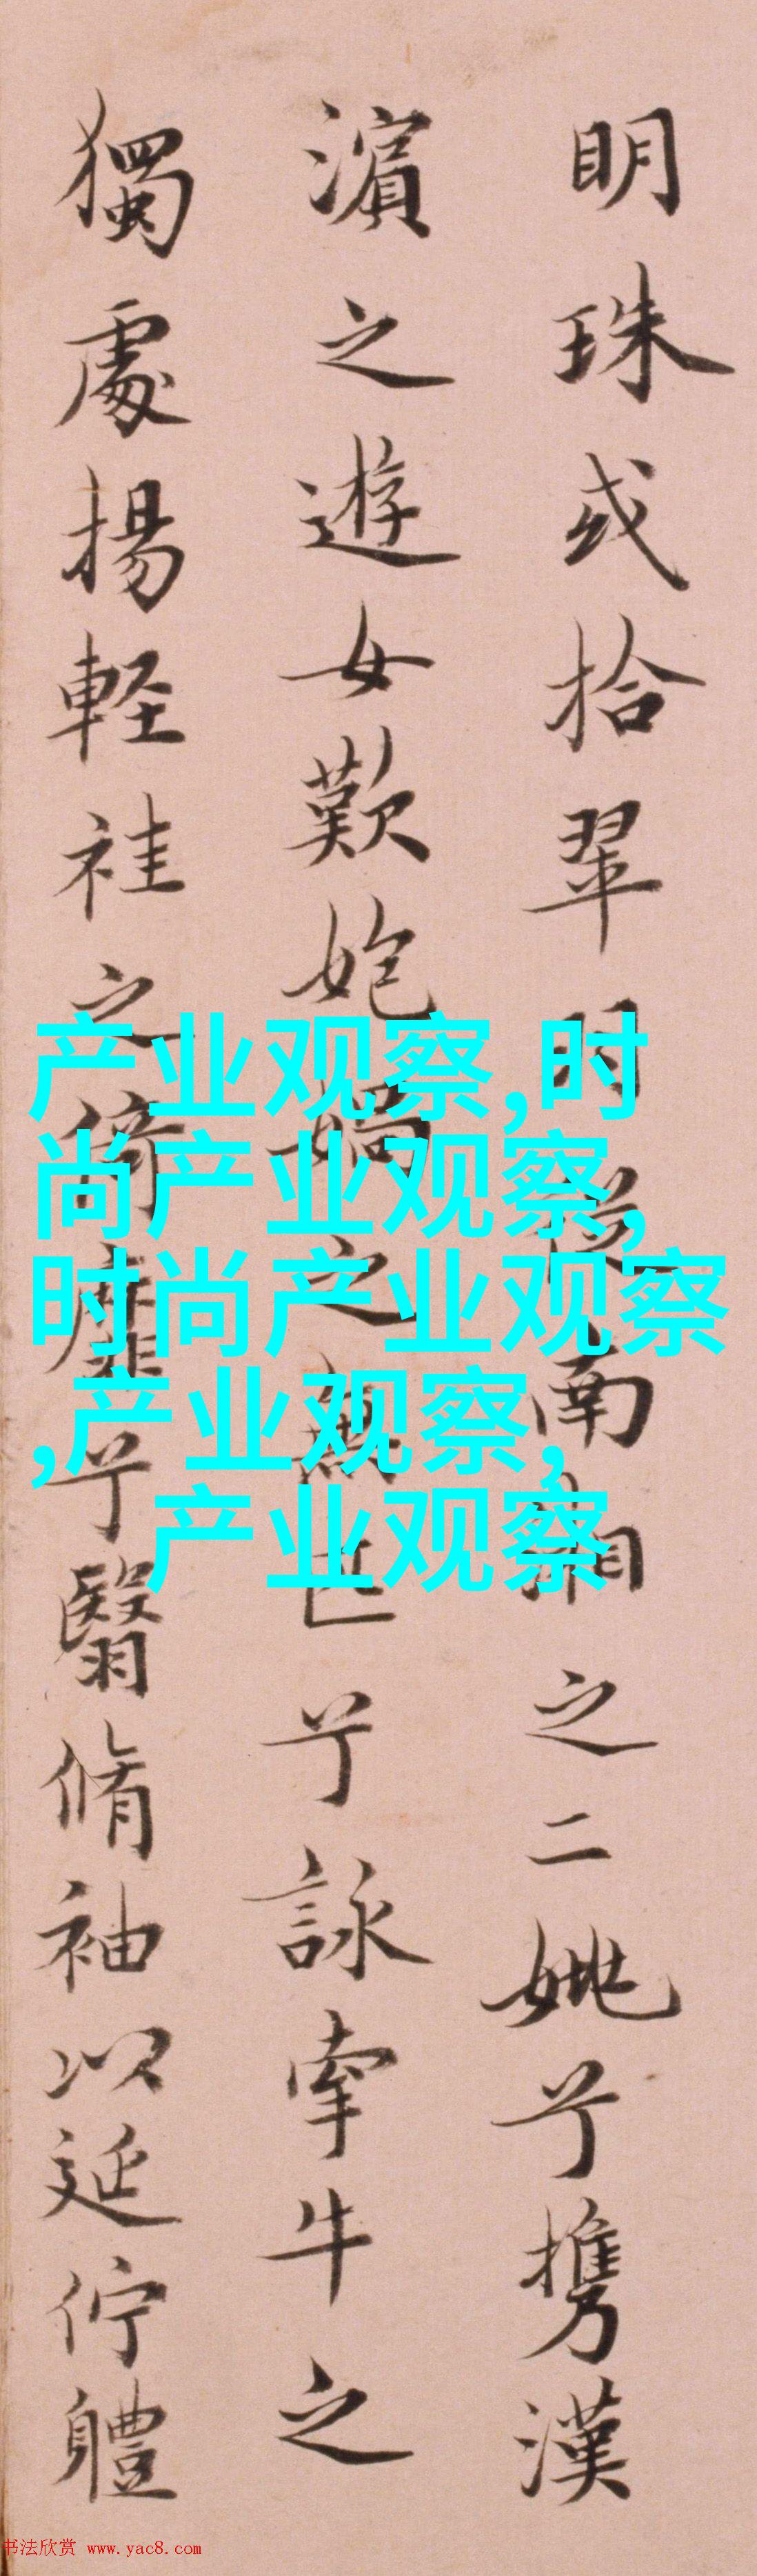 明珠或拾翠羽從南湘之二姚兮攜漢
濱之遊女歎匏媧之無匹兮詠牽牛之
獨處揚輕袿之倚靡兮翳脩袖以延佇體
产业观察,时
尚产业观察,
时尚产业观察
,产业观察,
产业观察
书法欣赏 www.yac8.com